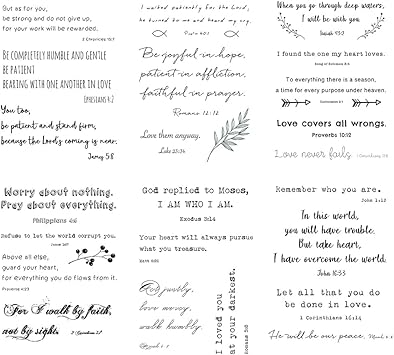 But as for you,
be strong and do not give up,
for your work will be rewarded.
2 Chronicles 15:7
Be completely humble and gentle
be patient
bearing with one another in love
Ephesians 4:2
You too,
be patient and stand firm,
because the Lord's coming is near.
James 5:8
I waited patiently for the Lord,
he turned to me and heard my cry.
Psalm 40:1
Be joyful in hope,
patient in affliction,
faithful in prayer.
Romans 12:12
Love them anyway.
Luke 23:34
When you go through deep waters,
I will be with you
Isaiah 43:2
I found the one my heart loves.
Song of Solomon 3:4
To everything there is a season,
a time for every purpose under heaven.
Ecclesiastes 3:1
Love covers all wrongs.
Proverbs 10:12
Love never fails
1 Corinthians 13:8
Worry about nothing.
Pray about everything.
Philippians 4:6
Refuse to let the world corrupt you.
Above all else,
guard your heart,
for everything you do flows from it.
Proverbs 4:23
For I walk by faith,
not by sight.
2 Corinthians 5:7
God replied to Moses,
I AM WHO I AM.
Exodus 3:14
Your heart will always pursue
what you treasure.
Act justly,
love mercy,
walk humbly.
Micah 6:8
I loved you
at your darkest.
Romans 5:8
Remember who you are.
John 1:12
In this world,
you will have trouble.
But take heart,
I have overcome the world.
John 16:33
Let all that you do
be done in love.
1 Corinthians 16:14
He will be our peace.